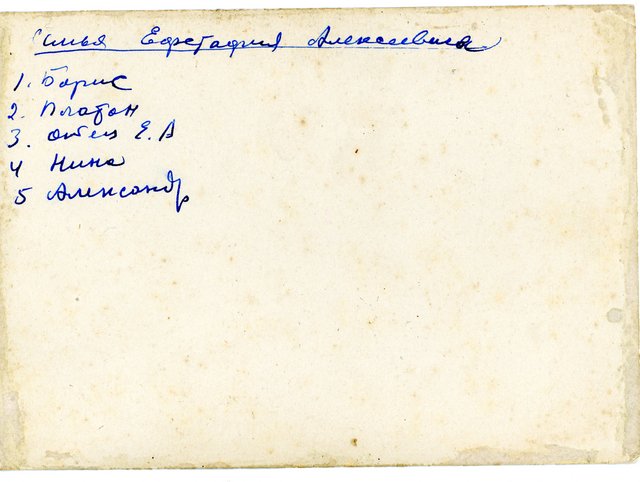 Семья Ефстафия Алексеевича
1. Борис
2. Платон
3. отец Е. А
4 Нина
5 Александр